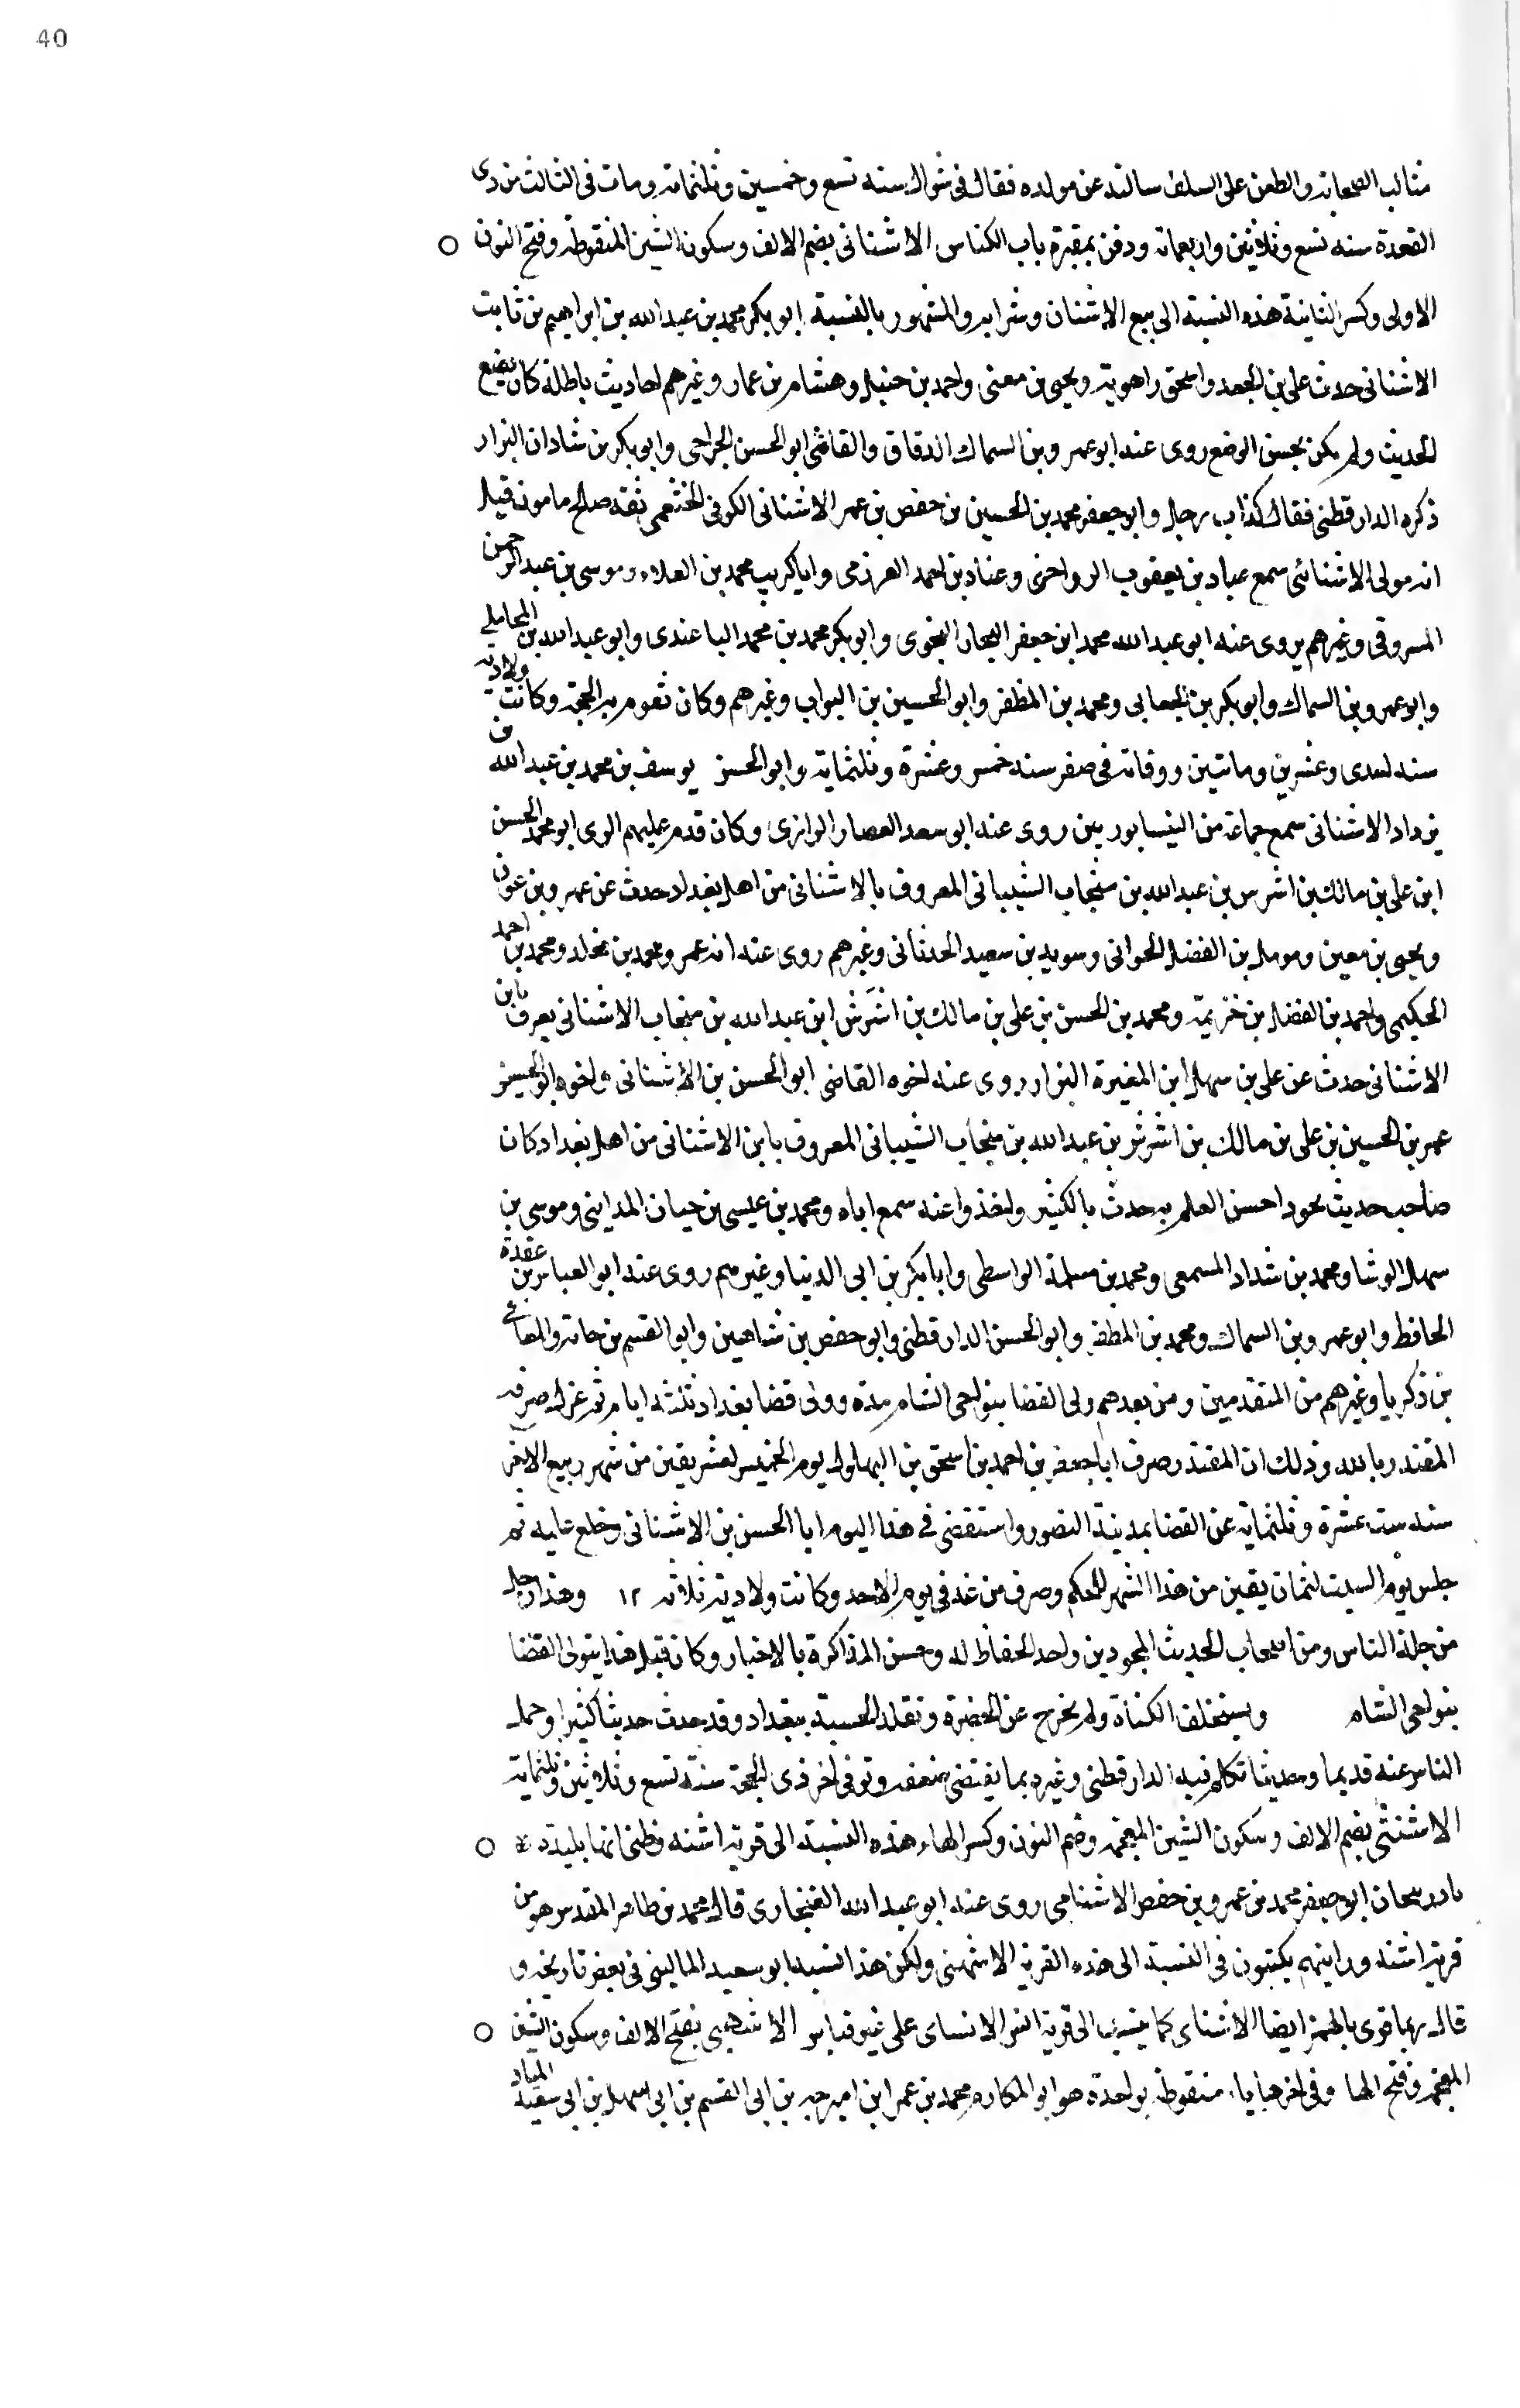 40
مثالب الصحابة والطعن على السلف سالته عن مولده فقال فى شوال سنه تسع وخمسين وثلثماته ومات فى الثالث من دى
القعدة سنه تسع وثلاثين واربعماته ودفن بمقبرة باب الكناس الاشنانى بضم الالف وسكون الشين المنقوطة وفتح النون
الاولى وكسر الثانية هذه النسبة الى بيع الاشنان وشرايه والمشهور بالنسبة ابو بكر محمد بن عبد الله بن ابراهيم بن ثابت
الاشنانى حدث على بن الجعد واسحق راهوية ويحيى بن معنى واحمد بن حنبل وهشام بن عمار وغيرهم احاديث باطلة كان يضع
الحديث ولم يكن يحسن الوضع روى عنه ابو عمر وبن السماك الدقاق والقاضى ابو الحسن الجراحى وابو بكر بن شادان البزار
ذكره الدارقطنى فقال كذاب رجل وابو جعفر محمد بن الحسين بن حفص بن عمر الاشنانى الكوفى الخثعمى ثقه صالح مامون قيل
انه مولى الاشنانى سمع عباد بن يعقوب الرواجنى وعباد بن احمد العرزمى واباكريب محمد بن العلاء وموسى بن عبد الرحمن
المسروقى وغيرهم روى عنه ابو عبد الله محمد ابن جعفر النجار النحوى وابو بكر محمد بن محمد الباغندى وابو عبد الله بن المحاملى
وابو عمرو بن السماك وابو بكر بن الجعابى ومحمد بن المظفر وابو الحسين بن البواب وغيرهم وكان تقوم به الحجة وكانت ولادته
سنه احدى وعشرين وماتين ووفاته فى صفر سنه خمس وعشرة وثلثماية وابو الحسن يوسف بن محمد بن عبد الله
يزداد الاشنانى سمع جماعة من النيسابوريين روى عنه ابو سعد العصار الرازى وكان قدم عليهم الرى ابو محمد الحسن
ابن على بن مالك بن اشرس بن عبد الله بن منجاب الشيبانى المعروف بالاشنانى من اهل بغداد حدث عن عمرو بن عون
ويحيى بن معين ومومل بن الفضل الحرانى وسويد بن سعيد الحدثانى وغيرهم روى عنه انه عمر ومحمد بن مخلد ومحمد بن احمد
الحكيمى واحمد بن الفضل بن خزيمة ومحمد بن الحسن بن على بن مالك بن اشرش ابن عبد الله بن منجاب الاشنانى يعرف بابن
الاشنانى حدث عن على بن سهل ابن المغيرة البزار روى عنه اخوه القاضى ابو الحسن بن الاشنانى واخوه ابو الحسين
عمر بن الحسين بن على بن مالك بن اشرش بن عبد الله بن منجاب الشيبانى المعروف بابن الاشنانى من اهل بغداد كان
صاحب حديث مجودا حسن العلم به حدث بالكثير واخذوا عنه سمع اباه ومحمد بن عيسى بن حيان المداينى وموسى بن
سهل الوشا ومحمد بن شداد المسمعى ومحمد بن مسلمة الواسطى وابا بكر بن ابى الدنيا وغيرهم روى عنه ابو العباس بن عقدة
الحافظ وابو عمرو بن السماك ومحمد بن المظفر وابو الحسن الدارقطنى وابو حفص بن شاهين وابو القسم بن حابه والمعافى
بن ذكريا وغيرهم من المتقدمين ومن بعدهم ولى القضا بنواحى الشام مدة وولى قضا بغداد ثلثة ايام ثم عزل صرفه
المقتدر بالله وذلك ان المقتدر صرف ابا جعفر بن احمد بن اسحق بن البهلول يوم الخميس لعشر بقين من شهر ربيع الاخر
سنه ست عشرة وثلثماية عن القضا بمدينة المنصور واستقضى فى هذا اليوم ابا الحسن بن الاشنانى وخلع عليه ثم
جلس يوم السبت لثمان بقين من هذا الشهر للحكم وصرف من غد فى يوم الاحد وكانت ولايته ثلاثه ١٢ وهذا رجل
من جلة الناس ومن اصحاب الحديث المجودين واحد الحفاظ له وحسن المذاكرة بالاخبار وكان قبل هذا يتولى القضا
بنواحى الشام ويستخلف الكفاة ولم يخرج عن الحضرة وتقلد الحسبة ببغداد وقد حدث حديثا كثيرا وحمل
الناس عنه قديما وحديثا تكلم فيه الدارقطنى وغيره بما يقتضى ضعفه وتوفى اخر ذى الحجة سنة تسع وثلاثين وثلثماية
الاشنى بضم الالف وسكون الشين المعجمه وضم النون وكسر الهاء هذه النسبة الى قرية اشنه وظنى انها بليدة
بادربيجان ابو جعفر محمد بن عمرو بن حفص الاشنامى روى عنه ابو عبد الله الغنجارى قال محمد بن طاهر المقدسى هو من
قرية اشنه ورايتهم يكتبون فى النسبة الى هذه القرية الاشهنى ولكن هذا نسبه ابو سعيد المالينى فى بعض تاريخه و
قال بها قوى بالهمز ايضا الاشناى كما ينسب الى قرية انس الانساى على غير قياس الاشهبى بفتح الالف وسكون الشين
المعجمه وفتح الها وفى اخرها يا منقوطة بواحدة هو ابو المكارم محمد بن عمر ابن اميرجه بن ابى القسم بن ابى سهل بن ابى سعيد